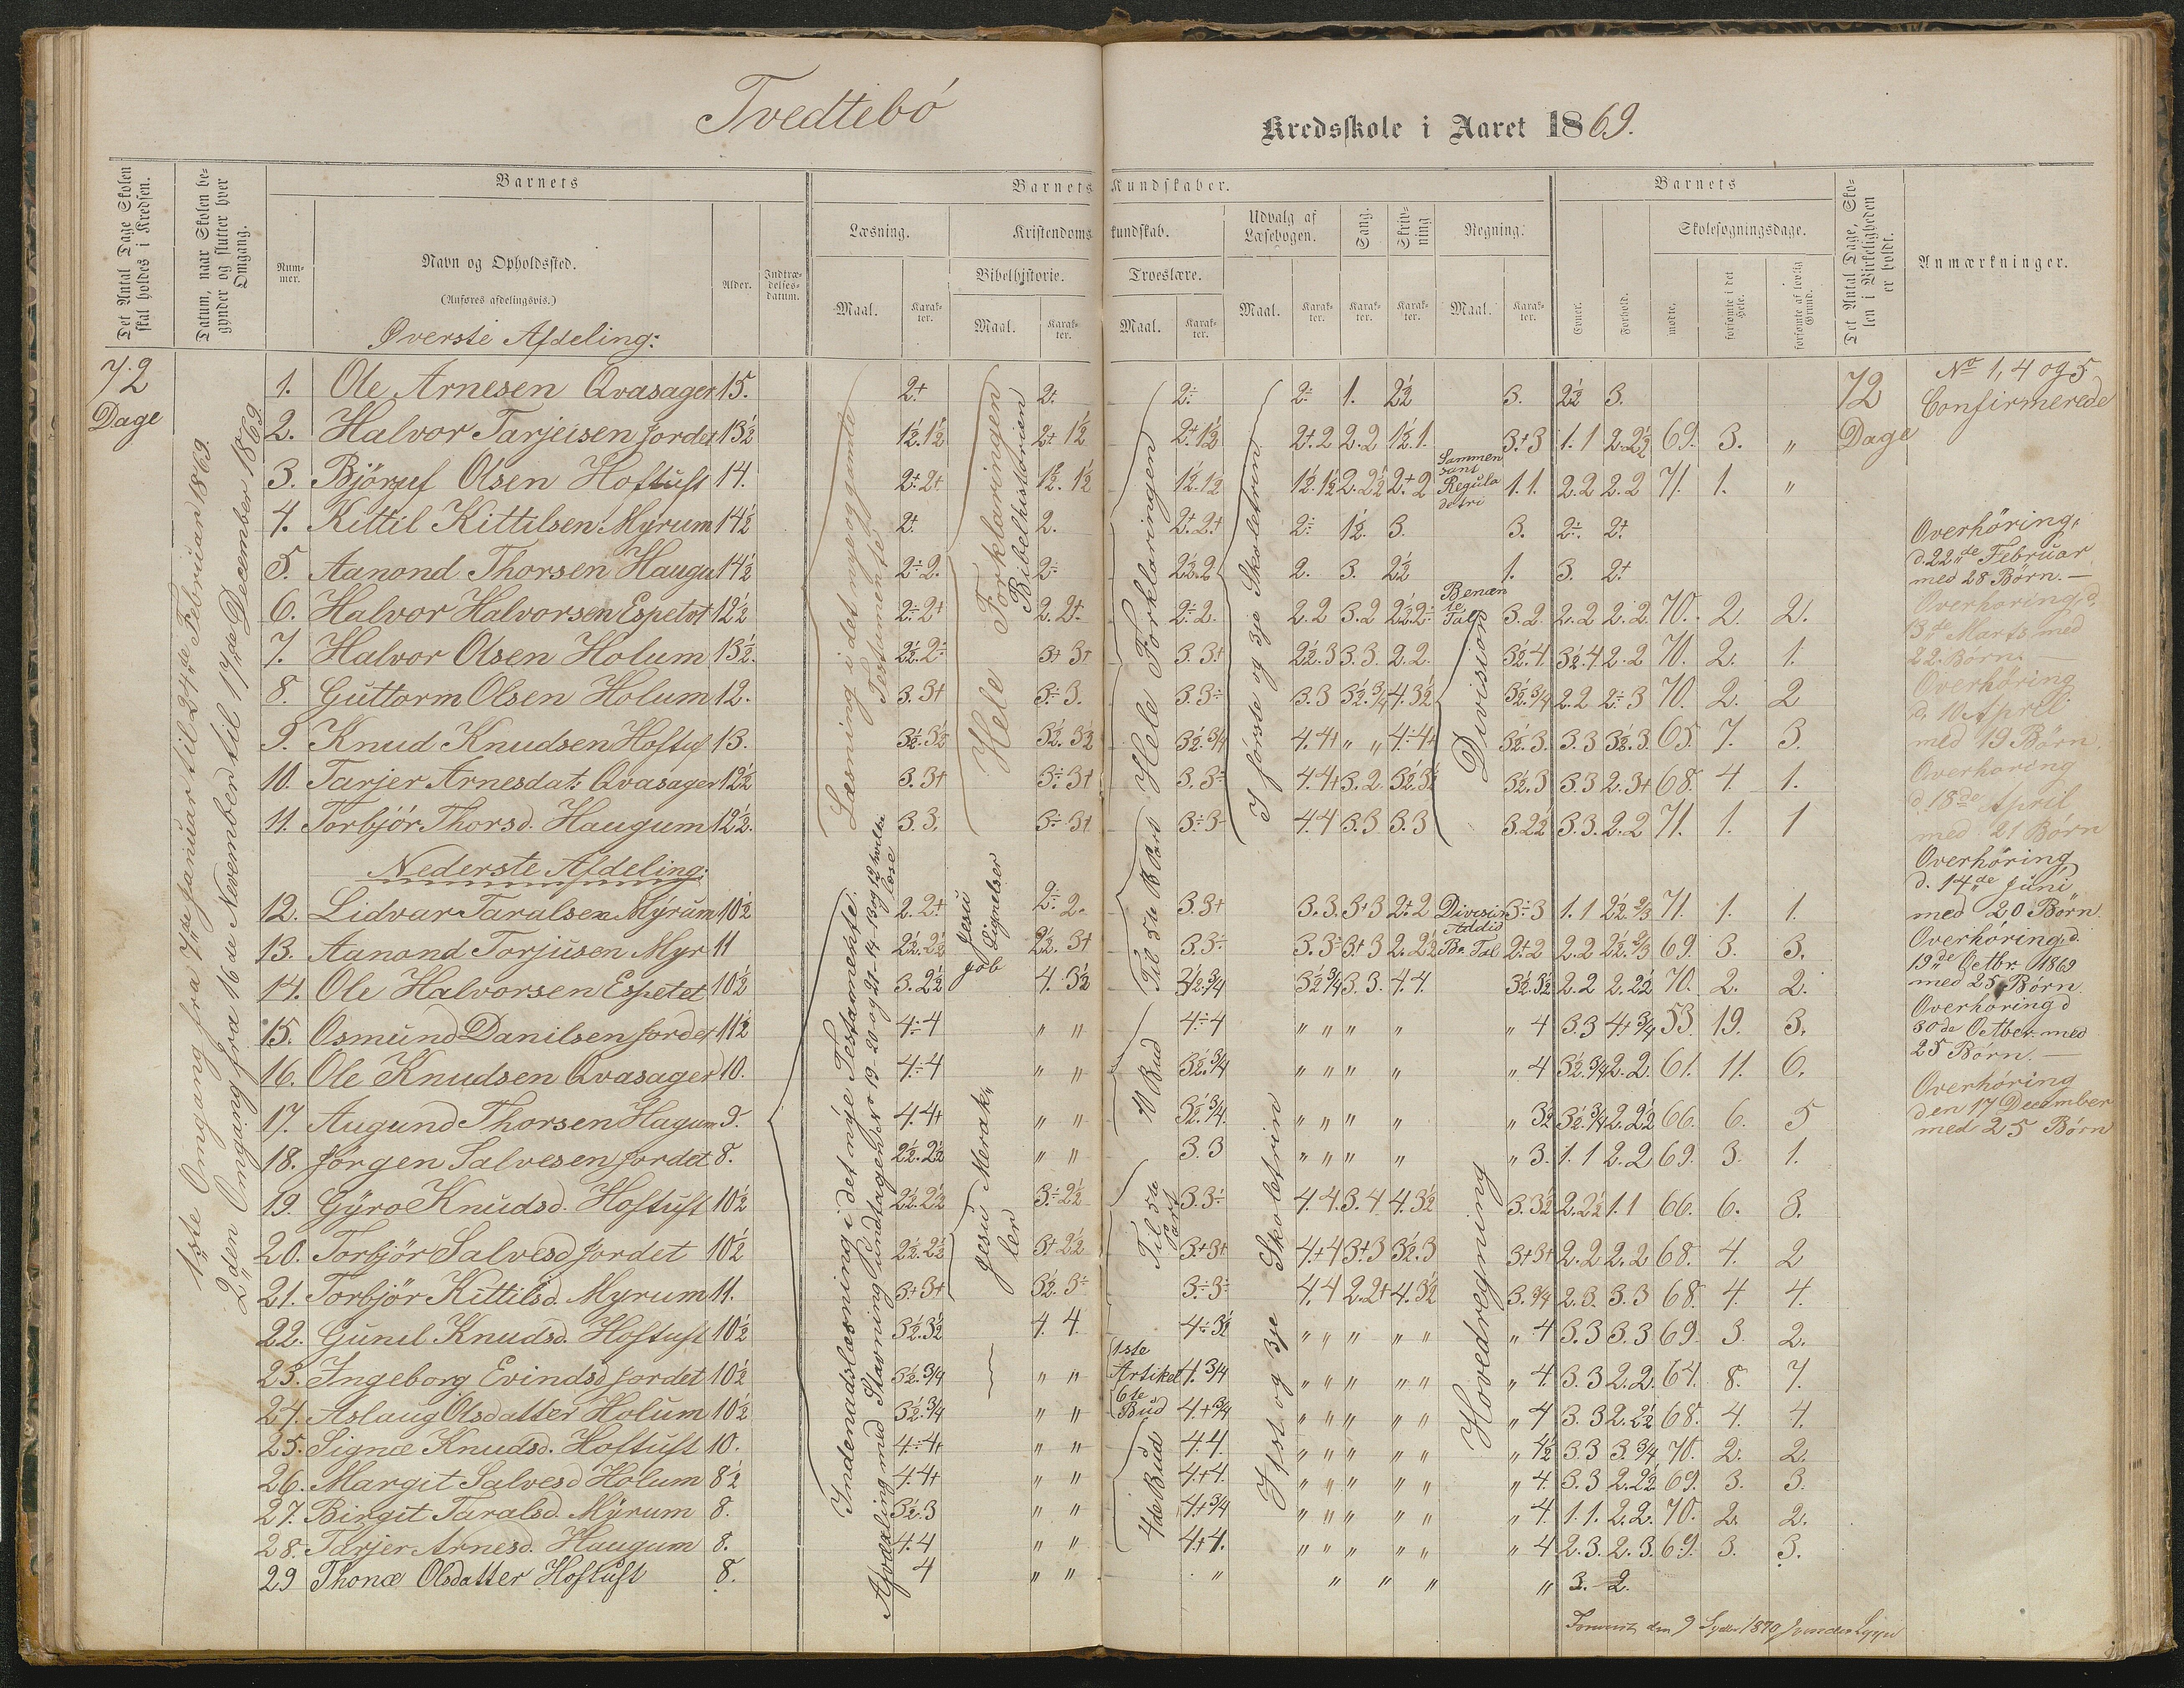 Tvedtebö
Kredsskole i Aaret 1869.
Det Antal Dage Skolen skal holdes i Kredsen.
Datum, naar Skolen begynder og slutter hver Omgang.
Barnets
Nummer.
Navn og Opholdssted.
(Anføres afdelingsvis.)
Alder.
Indtrædelsesdatum.
Barnets Kundskaber.
Læsning.
Maal.
Karakter.
Kristendomskundskab.
Bibelhistorie.
Maal.
Karakter.
Troeslære.
Maal.
Karakter.
Udvalg af Læsebogen.
Maal.
Karakter.
Sang.
Karakter.
Skrivning
Karakter.
Regning.
Maal.
Karakter.
Barnets
Evner.
Forhold.
Skolesøgningsdage.
mødte.
forsømte i det Hele.
forsømte af lovlig Grund.
Det Antal Dage, Skolen i Virkeligheden er holdt.
Anmærkninger.
72
Dage
1ste Omgang fra 7de Januar til 24de Februar 1869.
2den Omgang fra 16de November til 17de December 1869
Øverste Afdeling:
1. Ole Arnesen Qvasager 15. 2+ 2+ 2÷ 2÷ 1. 2½ 3. 2½ 3.
2. Halvor Tarjeisen Jordet 13½ 1½.1½ 2+ 1½ 2+.1½ 2+.2 2.2 1½.1. 3+3 1.1 2.2½ 69. 3. "
3. Björguf Olsen Hoftuft 14. 2+.2+ 1½.1½ 1½.1½ 1½.1½ 2.2½ 2+.2 1.1. 2.2 2.2 71. 1. "
4. Kittil Kittilsen Myrum 14½ 2+ 2. 2+.2+ 2÷ 1½. 3. 3. 2÷. 2+
5. Aanond Thorsen Haugu 14½ 2÷2. 2÷ 2½.2 2. 3. 2½ 1. 3. 2+
6. Halvor Halvorsen Espetvt 12½ 2÷2+ 2.2+. 2÷2. 2.2 3.2 2½.2÷ 3.2. 2.2 2.2. 70. 2. 2.
7. Halvor Olsen Holum 13½. 2½.2÷ 3+ 3+ 3.3+ 2½.3 3.3. 2.2. 3½.4. 3½.4 2.2 70. 2. 1.
8. Guttorm Olsen Holum 12. 3.3+ 3÷3. 3.3÷ 3.3 3½.¾ 4.3½ 3½.¾ 2.2 2÷3 70. 2. 2
9. Knud Knudsen Hoftuf 13. 3½.3½ 3½.3½ 3½.¾ 4.4+ " " 4÷4+ 3½.3. 3.3 3½.3. 65. 7. 3.
10. Tarjer Arnesdat: Qvasager 12½ 3.3+ 3÷3+ 3.3÷ 4.4+ 3.2 3½.3½ 3½.3 3.3 2.3+ 68. 4. 1.
11. Torbjör Thorsd. Haugum 12½. 3.3. 3÷3+ 3÷3÷ 4.4 3.3 3.3 3.2½ 3.3. 2.2 71. 1. 1
Nederste Afdeling:
12. Lidvar Taralsen Myrum 10½ 2.2+ 2÷2. 3.3+ 3.3. 3+3 2+2 3÷3 1.1 2½.⅔ 71. 1. 1.
13. Aanond Torjusen Myr 11 2½.2½ 2½.3+ 3.3÷ 3.3÷ 3+3 2.2½ 2+2 2.2 2½.⅔ 69. 3. 3.
14. Ole Halvorsen Espetet 10½ 3.2½ 4.3½ 3½.¾ 3½.¾ 3.3. 4.4. 3½.3½ 2.2 2.2½ 70. 2. 2.
15. Osmund Danilsen Jordet 11½ 4÷4 " " 4÷4 " " " " " 4 3.3 4+¾ 53. 19. 3.
16. Ole Knudsen Qvasager 10. 4÷4 " " 3½.¾ " " " " " 4 3½.¾ 2.2. 61. 11. 6.
17. Augund Thorsen Hagum 9. 4.4+ " " 3½.¾. " " " " " 3½ 3½.¾ 2.2½ 66. 6. 5
18. Jörgen Salvesen Jordet 8. 2½.2½ " " 3.3 " " " " " 3. 1.1 2.2 69. 3. 1.
19. Gyro Knudsd. Hoftuft 10½ 2½.2½ 3÷2½ 3.3÷. 4.4. 3.4 4.3½ 3.3½ 2.2½ 1.1 66. 6. 3.
20. Torbjör Salvesd Jordet 10½ 2½.2½ 3+2½ 3+3+ 4+4 3+3 3½.3 3+3+ 2.2 2.2 68. 4. 2
21. Torbjör Kittilsd. Myrum 11. 3+3+ 3½.3÷ 3÷3÷ 4.4 2.2+ 4.3½ 3.¾ 2.3. 3.3 68. 4. 4.
22. Gunil Knudsd. Hoftuft 10½ 3½.3½ 4.4. 4÷3½ " " " " " " 4 3.3 3.3 69. 3. 2.
23. Ingeborg Evindsd Jordet 10½ 3½.¾ " " 4.¾ " " " " " " 4. 3.3 2.2. 64. 8. 7.
24. Aslaug Olsdatter Holum 10½ 3½.¾ " " 4+¾ " " " " " " 4 3.3 2.2½ 68. 4. 4.
25. Signæ Knudsd. Hoftuft 10. 4÷4+ " " 4.4. " " " " " " 4½ 3.3 3.¾ 70. 2. 2.
26. Margit Salvesd Holum 8½ 4.4+ " " 4.+4. " " " " " " 4. 3.3 2.2½ 69. 3. 3.
27. Birgit Taralsd. Myrum 8. 3½.3 " " 4+¾ " " " " " " 4. 1.1. 2.2. 70. 2. 2.
28. Tarjer Arnesd. Haugum 8. 4.4 " " 4+4. " " " " " " 4 2.3. 2.3. 69. 3. 3.
29 Thonæ Olsdatter Hoftuft 8. 4 " " " " " " " 3. 2.
Læsning i det nye og gamle Testamente
Hele Forklaringen
Bibelhistorien
Hele Forklaringen
I förste og 3je Skoletrin
Sammensant Regula detri
Benænte Tal
Division
Indenadslæsning i det nye Testamente.
Afdeling med Stavning Undtagen No 19-20 og 21-14-13 og 12 hvilke læse
Jesu Lignelser
Job
Jesu Merakler
Til 5te Part
10 Bud
Til 5te Part
1ste Artikel
6te Bud
4de Bud
I 1st og 3je Skoletrin
Division
Addid
Be. Tal
Hovedregning
72
Dage
No 1, 4 og 5
Confirmerede
Overhöring,
d. 22de Februar
med 28 Börn. —
Overhöring, d.
13de Marts med
22. Börn. —
Overhöring
d. 10 April
med 19 Börn.
Overhöring
d. 18de April
med 21 Börn
Overhöring
d. 14de Juni
med 20 Börn.
Overhöring, d.
19de Octbr. 1869
med 25 Börn.
Overhöring d
30de Octber. med
25 Börn. —
Overhöring
den 17 December
med 25 Börn
den 9 1870